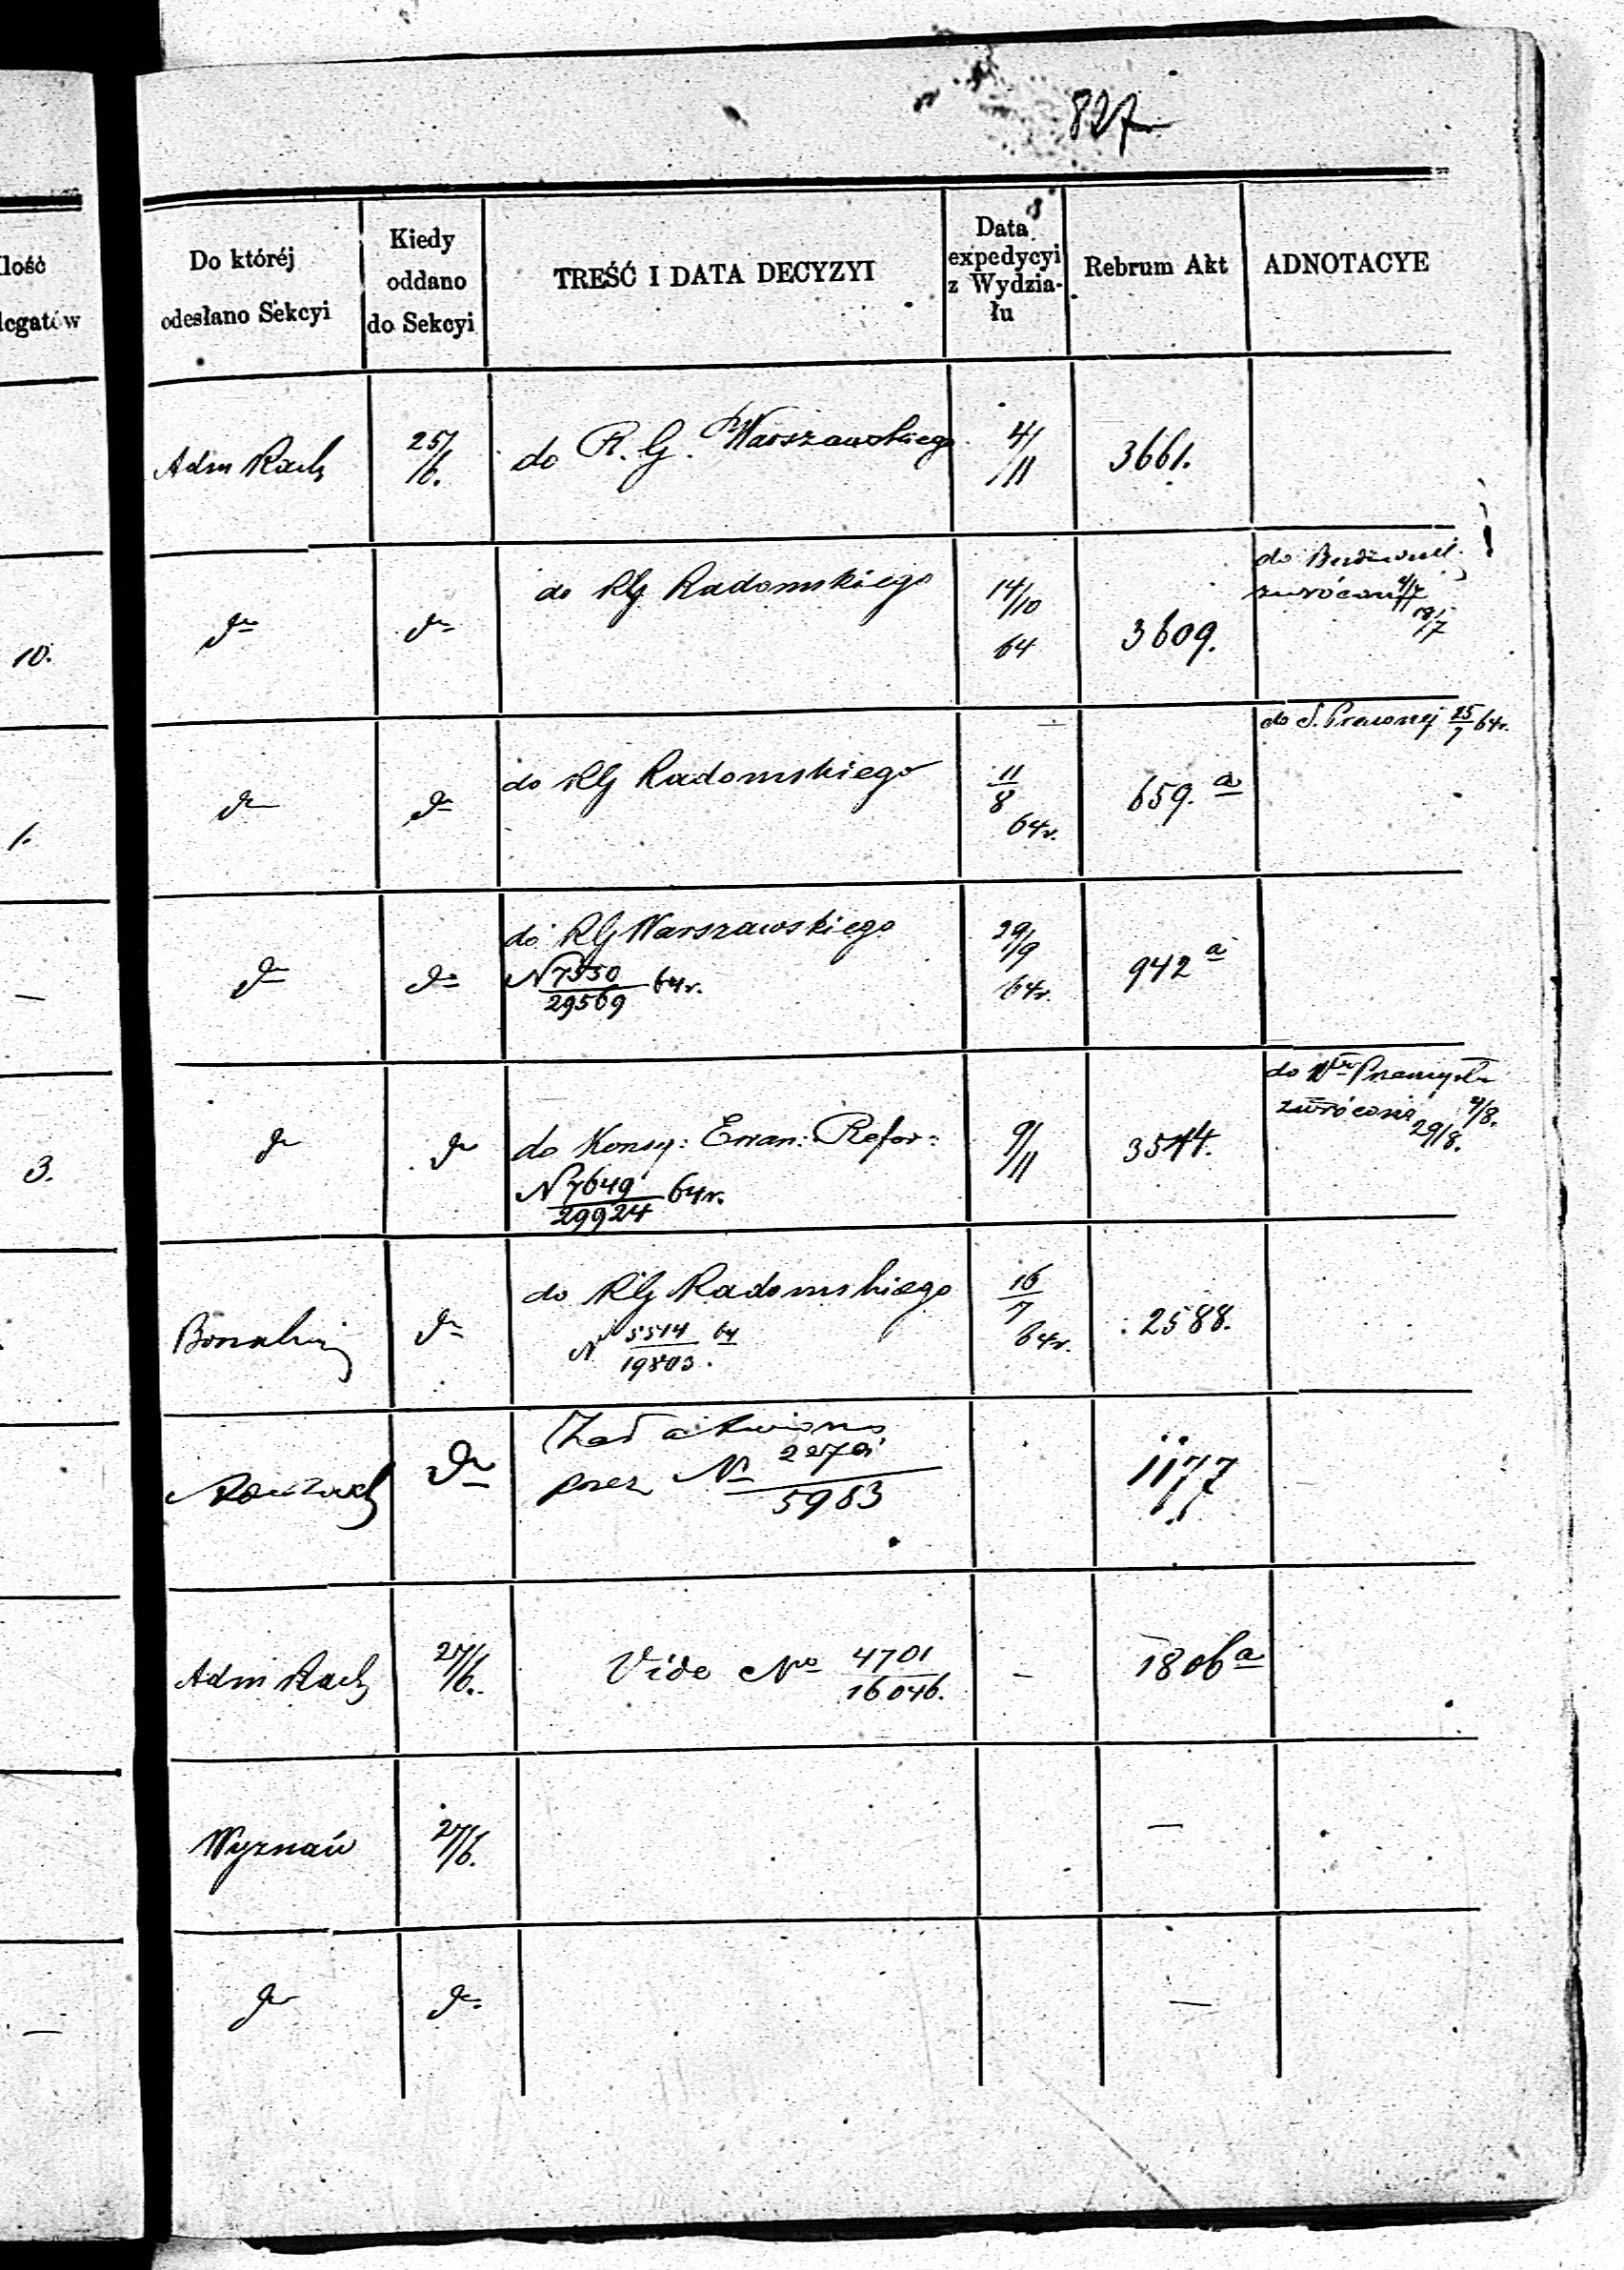 827
Ilość
legatów
Do któréj
odesłano Sekcyi
Kiedy
oddano
do Sekcyi
TREŚĆ I DATA DECYZYI
Data
expedycyi
z Wydzia-
łu
Rebrum Akt
ADNOTACYE
Adm Rach
25/6.
do R. G. Warszawskiego
4/11
3661.
10.
do
do
do RG Radomskiego
14/10
64
3609.
do
zwrócony
18/7
1.
do
do
do RG Radomskiego
11/8
64r.
659. a
do S. Prawnej 25/7 64r.
—
do
do
do RG Warszawskiego
N 7550/29569 64r.
29/9
64r.
942 a
3.
do
do
do Konsy: Ewan: Refor:
N 7649/29924 64r.
9/11
3544.
do Włu Przemysłu
zwrócona 9/8.
29/8.
do
do RG Radomskiego
N 5514/19803. 64
16/7
64r.
2588.
do
Załatwiono
przez No /5983
1177
Adm Rach
27/6.
Vide No 4701/16046.
—
1806 a
Wyznań
27/6.
—
—
do
do
—